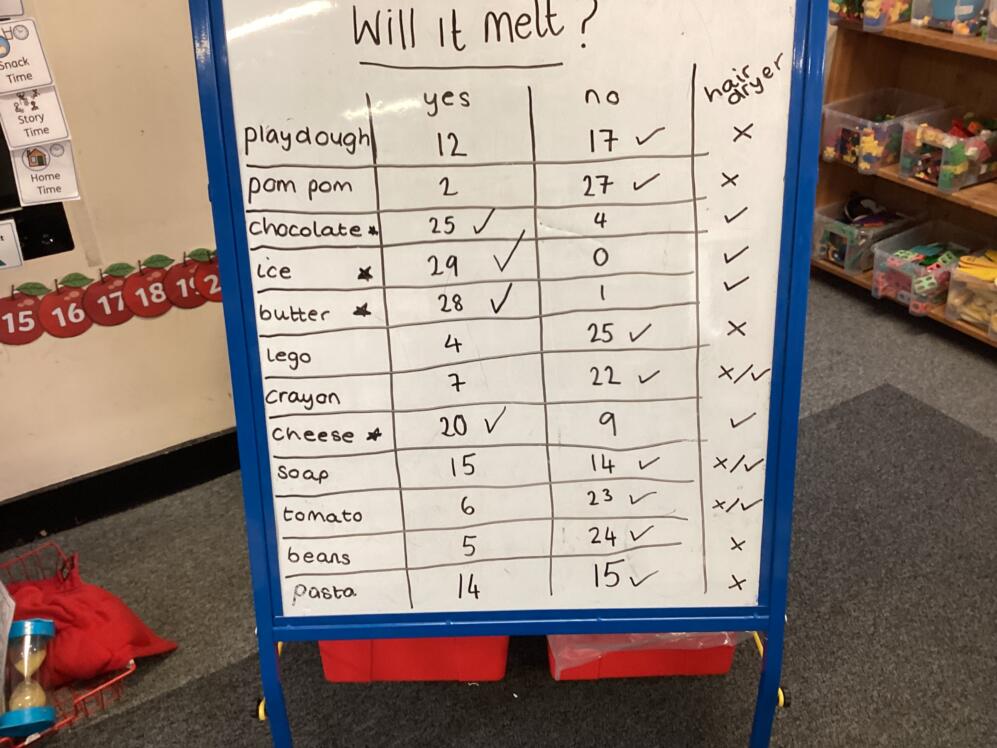 Will it melt?
yes no hair dryer
playdough 12 17 ✓ ×
pom pom 2 27 ✓ ×
chocolate★ 25 ✓ 4 ✓
ice ★ 29 ✓ 0 ✓
butter ★ 28 ✓ 1 ✓
lego 4 25 ✓ ×
crayon 7 22 ✓ ×/✓
cheese ★ 20 ✓ 9 ✓
soap 15 14 ✓ ×/✓
tomato 6 23 ✓ ×/✓
beans 5 24 ✓ ×
pasta 14 15 ✓ ×
Snack
Time
Story
Time
Home
Time
15 16 17 18